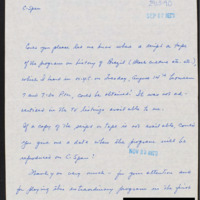 C-Span
Could you please let me know where a script or tape
of the program on history of Brazil (
which I have in on Sunday, August 14th between
7 and 8:00 P.M., could be obtained? It was not ad-
vertised in the TV listings available to me.
If a copy of the script or tape is not available, could
you give me a date when the program will be
reproduced on C-Span?
Thank you very much - for your attention and
for playing this extraordinary program in the first